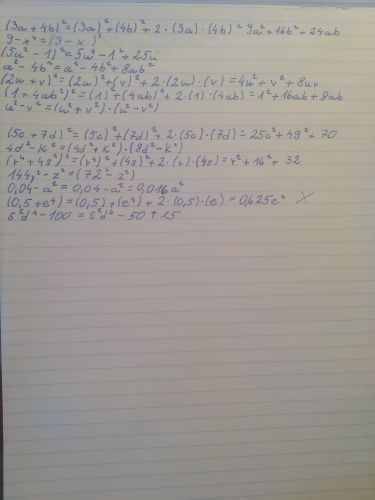 (3a + 4b)² = (3a)² + (4b)² + 2 · (3a) · (4b) = 9a² + 16b² + 24ab
9 - x⁴ = (3 - x)²
(5u² - 1)² = 5u⁴ - 1² + 25u
a² - 4b² = a² - 4b² + 8ab²
(2w + v)² = (2w)² + (v)² + 2 · (2w) · (v) = 4w² + v² + 8wv
(1 + 4ab²)² = (1)² + (4ab)² + 2 · (1) · (4ab) = 1² + 16ab + 8ab
u² - v² = (u² + v²) · (u² - v²)
(5c + 7d)² = (5c)² + (7d)² + 2 · (5c) · (7d) = 25c² + 49² + 70
4d² - k² = (4d² + k²) · (8d² - k²)
(r⁴ + 4s)² = (r⁴)² + (4s)² + 2 · (r) · (4s) = r² + 16² + 32
144y² - z² = (72² - z²)
0,04 - a² = 0,04 - a² = 0,016a²
(0,5 + e⁴) = (0,5) + (e⁴) + 2 · (0,5) · (e) = 0,625e⁴ X
s²d⁴ - 100 = s²d⁴ - 50 + 25